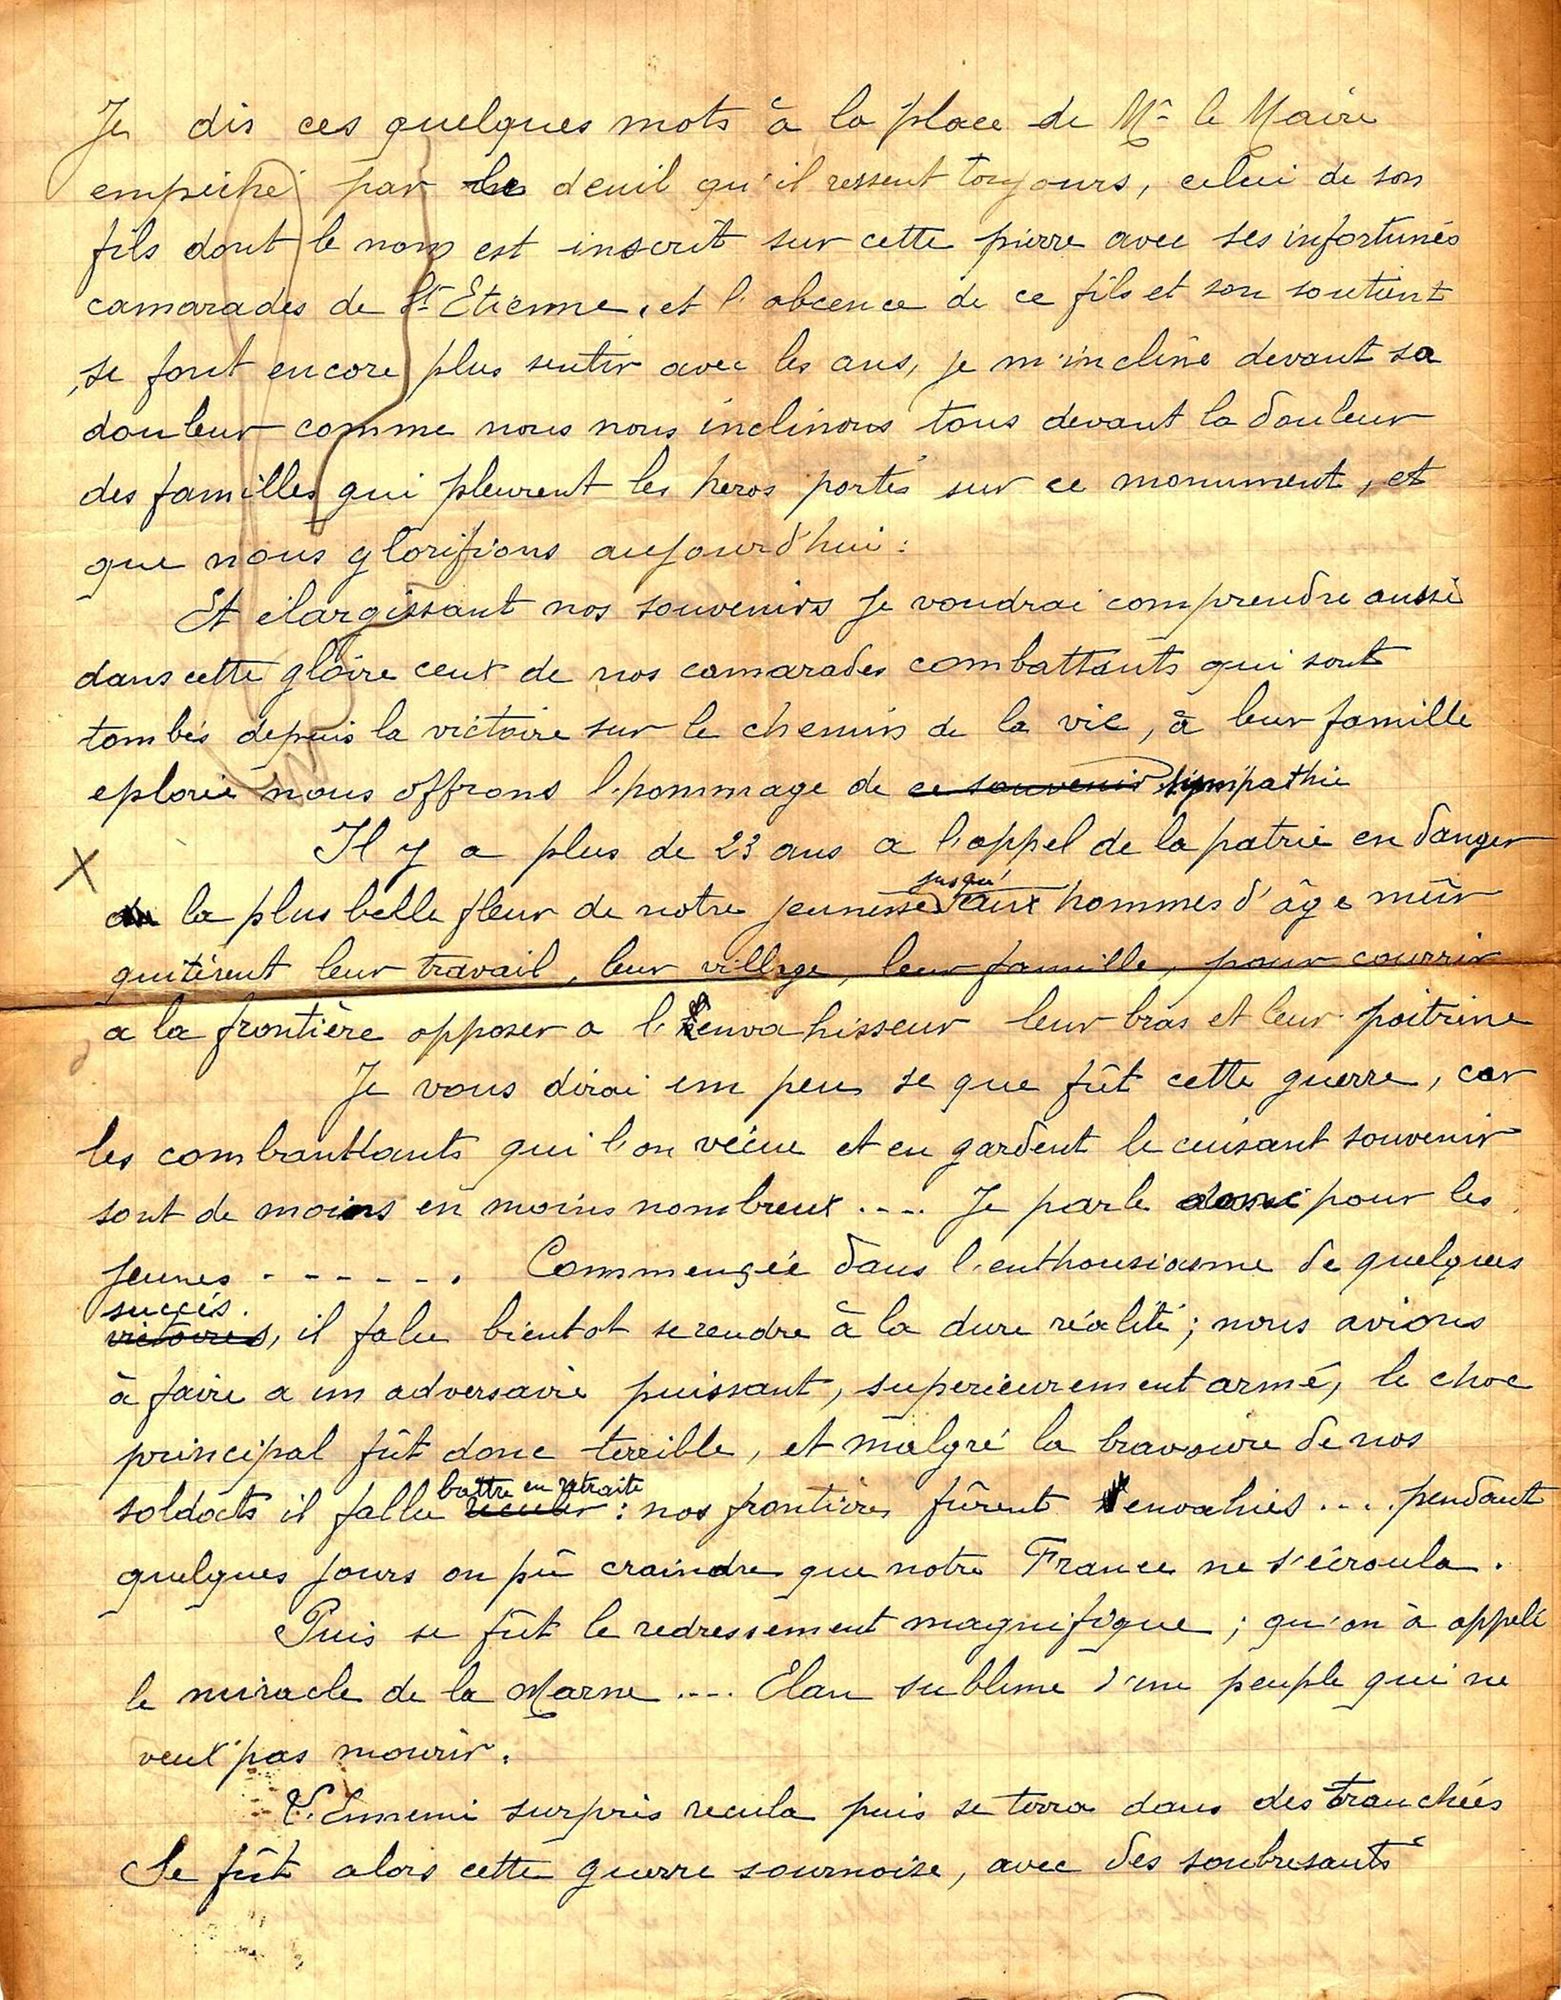 Je dis ces quelques mots à la place de Mr le Maire
empêché par le deuil qu'il ressent toujours, celui de son
fils dont le nom est inscrit sur cette pierre avec ses infortunés
camarades de St Etienne, et l'abcence de ce fils et son soutient
se font encore plus sentir avec les ans, je m'incline devant sa
douleur comme nous nous inclinons tous devant la douleur
des familles qui pleurent les heros portés sur ce monument, et
que nous glorifions aujourd'hui :
Et élargissant nos souvenirs je voudrai comprendre aussi
dans cette gloire ceux de nos camarades combattants qui sont
tombés depuis la victoire sur le chemin de la vie, à leur famille
eplorée nous offrons l'hommage de ce souvenir sympathie
X Il y a plus de 23 ans a l'appel de la patrie en danger
jusqu'
la plus belle fleur de notre jeunesse aux hommes d'âge mûr
quitèrent leur travail, leur village, leur famille, pour courrir
a la frontière opposer a l'envahisseur leur bras et leur poitrine
Je vous dirai un peu se que fût cette guerre, car
les combanttants qui l'on vécue et en gardent le cuisant souvenir
sont de moins en moins nombreux .... Je parle donc pour les
jeunes - - - - - - . Commençée dans l'enthousiasme de quelques
succés.
victoires, il falu bientot se rendre à la dure réalité ; nous avions
à faire a un adversaire puissant, superieurement armé, le choc
principal fût donc terrible, et malgré la bravouire de nos
battre en retraite
soldats il fallu reculer : nos frontières fûrent envahies .... pendant
quelques jours on pû craindre que notre France ne s'écroula.
Puis se fût le redressement magnifique ; qu'on à appelé
le miracle de la Marne .... Elan sublime d'un peuple qui ne
veut pas mourir.
L'Ennemi surpris recula puis se terra dans des tranchées
Se fût alors cette guerre sournoise, avec des soubresauts